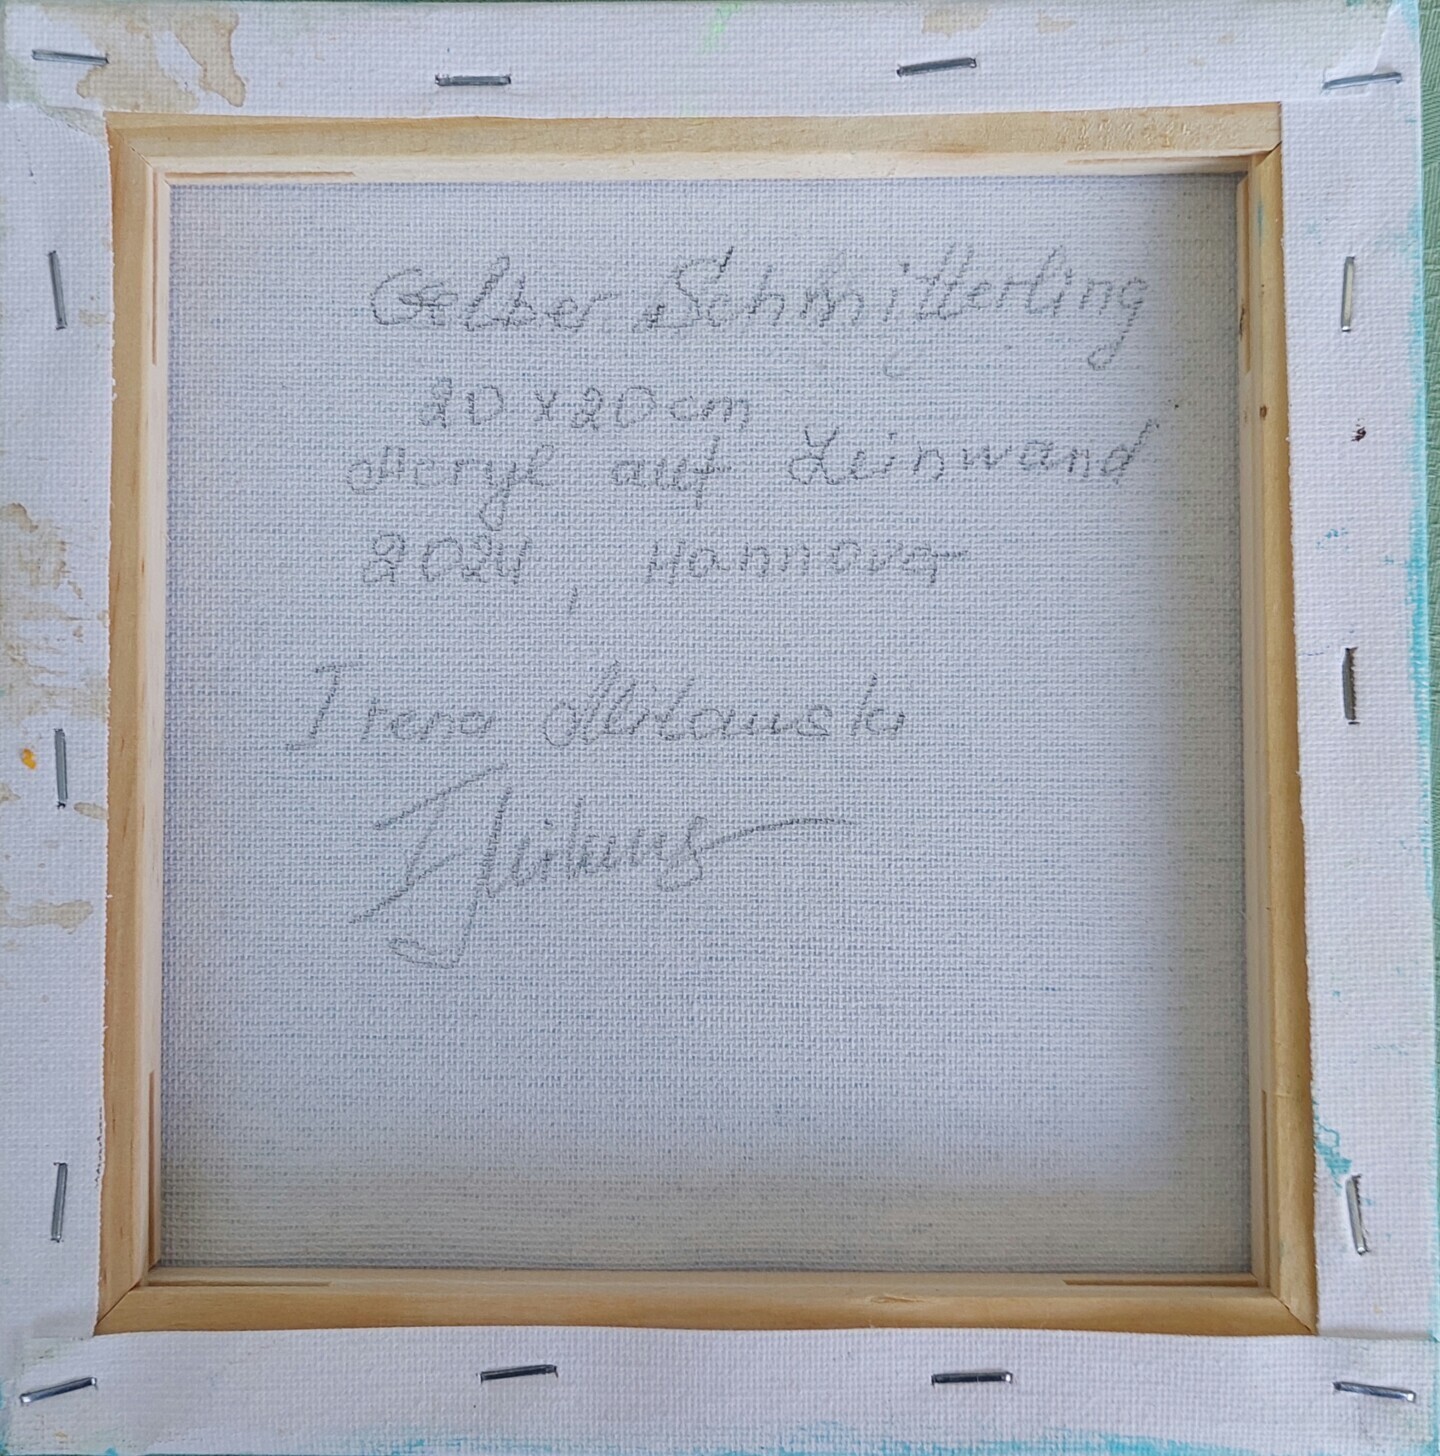 Gelber Schmitterling
20 x 20 cm
Acryl auf Leinwand
2024, Hannover
Irena Milauski